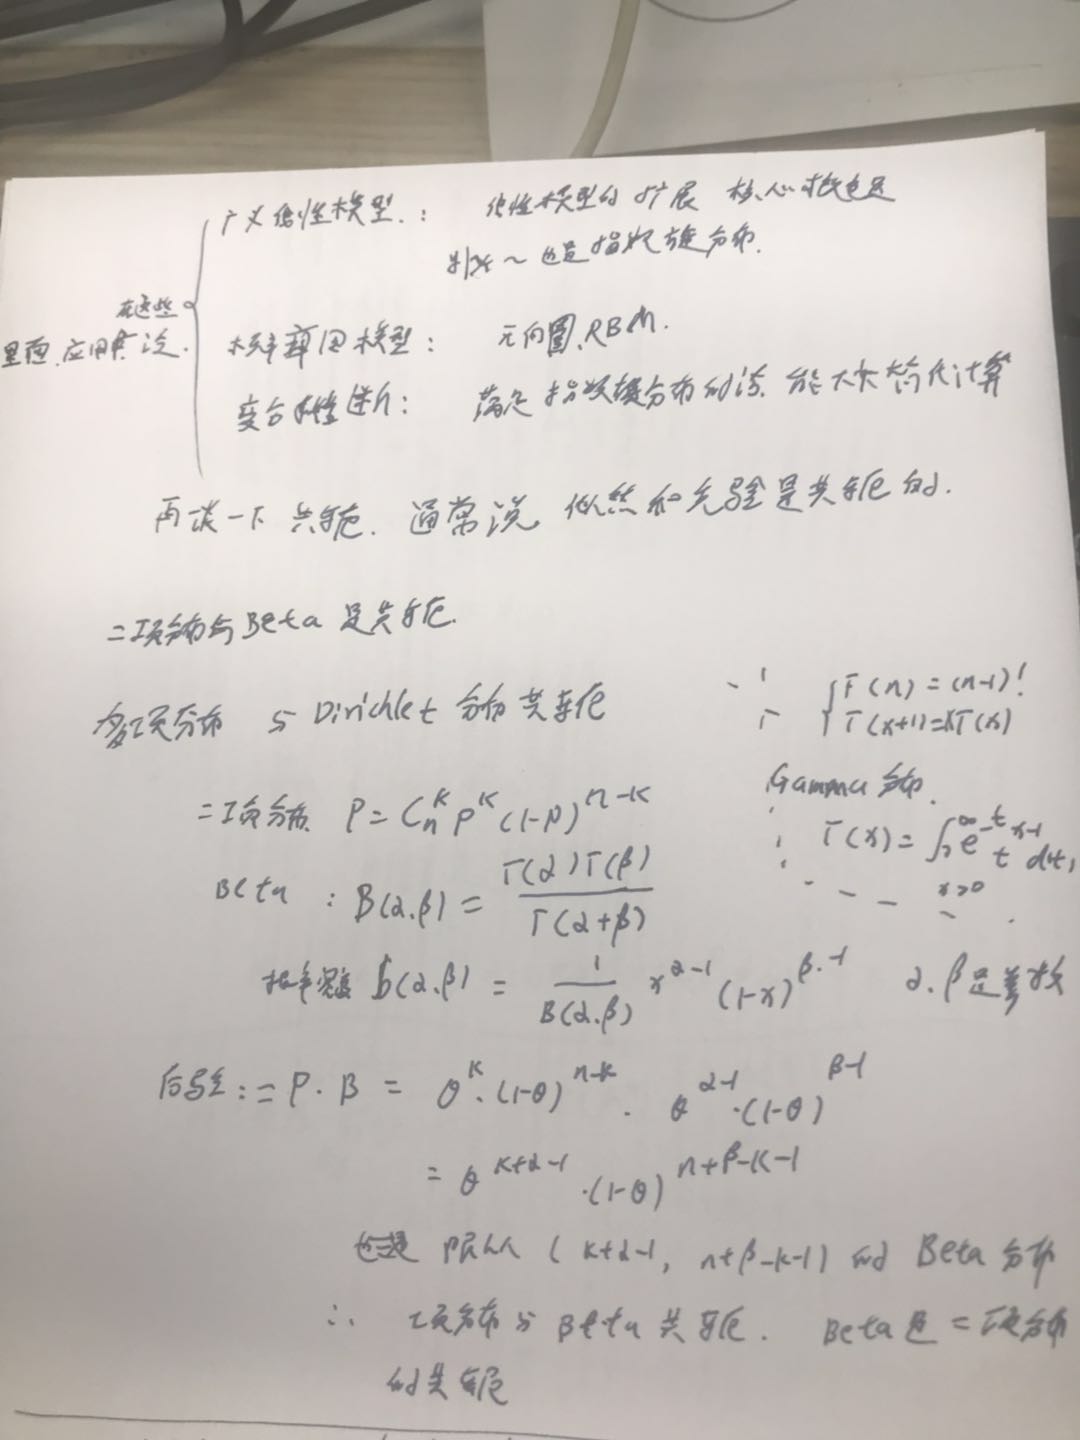 广义线性模型.： 线性模型的扩展 核心才概也是
y|x ~ 也是指数族分布.
在这些
里面,应用广泛.
概率图模型： 无向圖,RBM.
变分推断： 满足指数族分布的话,能大大简化计算
再谈一下 共轭. 通常说 似然和先验是共轭的.
二项分布与Beta是共轭.
多项分布 与 Dirichlet 分布共轭
Γ(n) = (n-1)!
Γ(x+1)=xΓ(x)
Gamma 分布.
Γ(x) = ∫₀^∞ e^{-t} t^{x-1} dt,
x>0
二项分布 P = C_n^k p^k (1-p)^{n-k}
Beta : B(α.β) = Γ(α)Γ(β) / Γ(α+β)
概率密度 b(α.β) = 1/B(α.β) x^{α-1} (1-x)^{β-1} α.β是参数
后验: = P·B = θ^k·(1-θ)^{n-k} · θ^{α-1}·(1-θ)^{β-1}
= θ^{k+α-1}·(1-θ)^{n+β-k-1}
也是 服从 (k+α-1, n+β-k-1) 的 Beta 分布
∴ 二项分布与 Beta 共轭. Beta是二项分布
的共轭